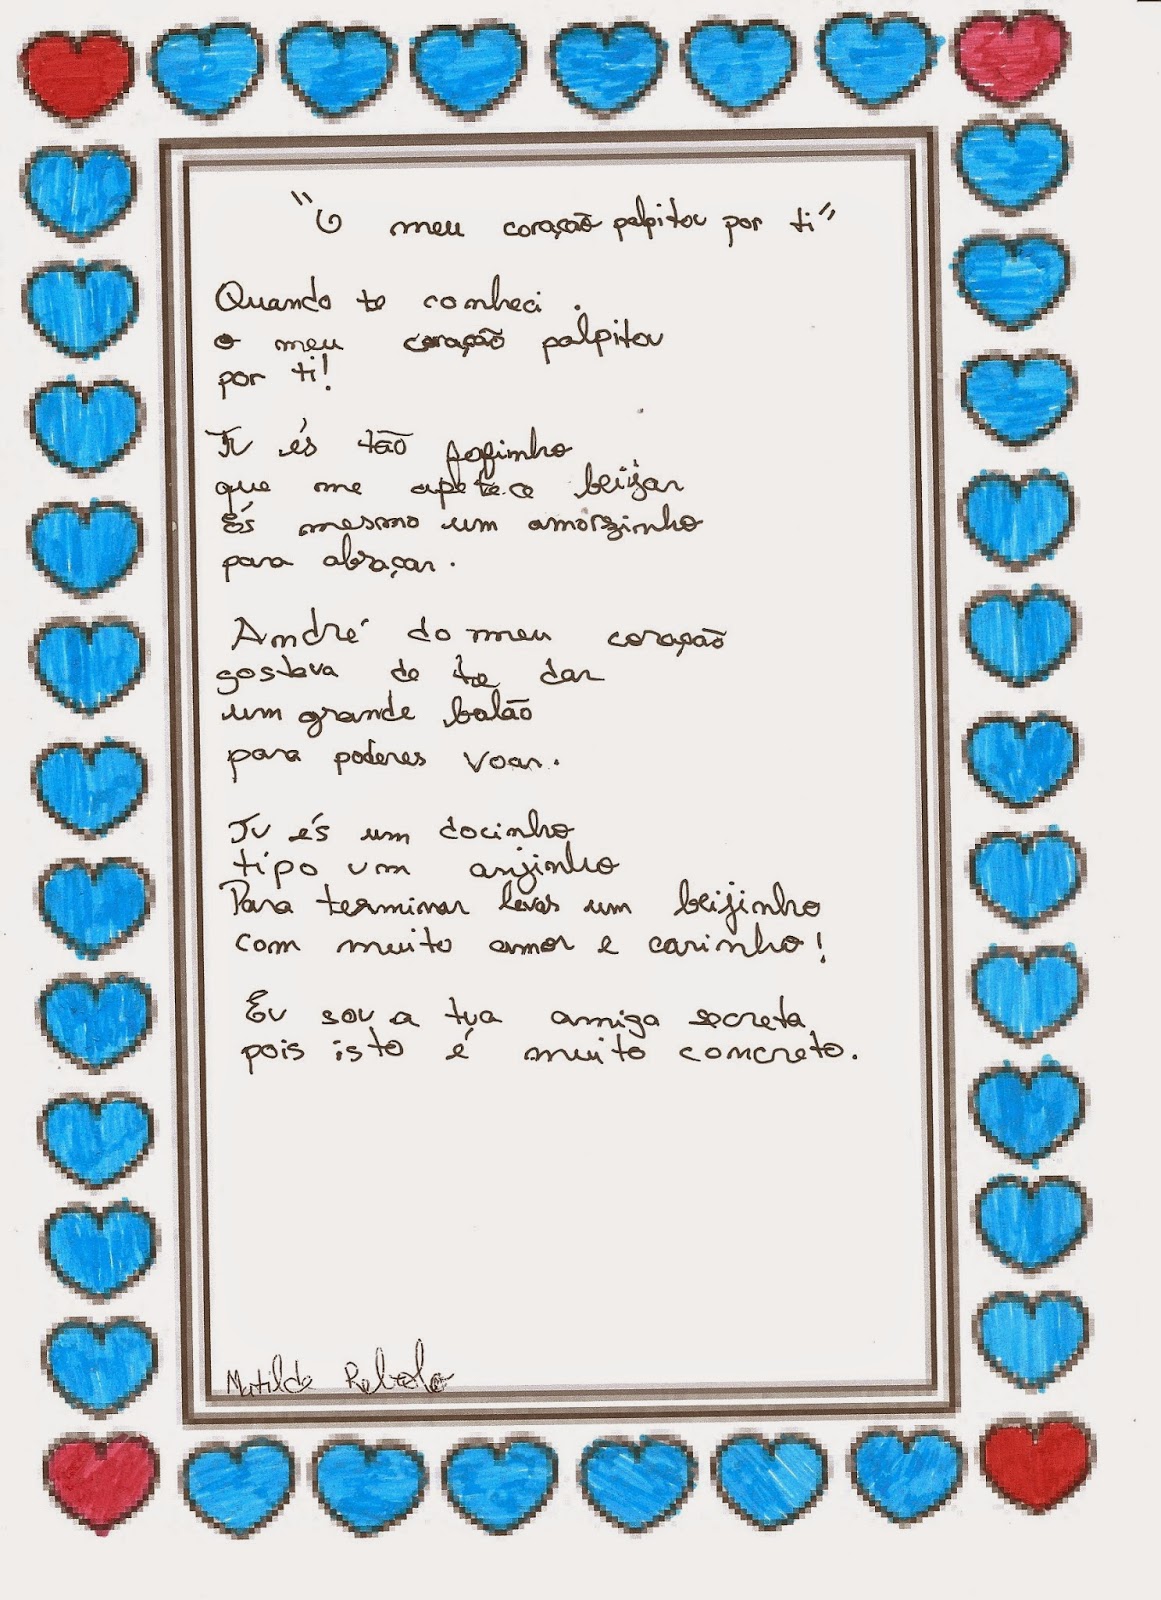 "O meu coração palpitou por ti"
Quando te conheci
o meu coração palpitou
por ti!
Tu és tão fofinho
que me apetece beijar
És mesmo um amorzinho
para abraçar.
André do meu coração
gostava de te dar
um grande balão
para poderes voar.
Tu és um docinho
tipo um anjinho
Para terminar levas um beijinho
com muito amor e carinho!
Eu sou a tua amiga secreta,
pois isto é muito concreto.
Matilde